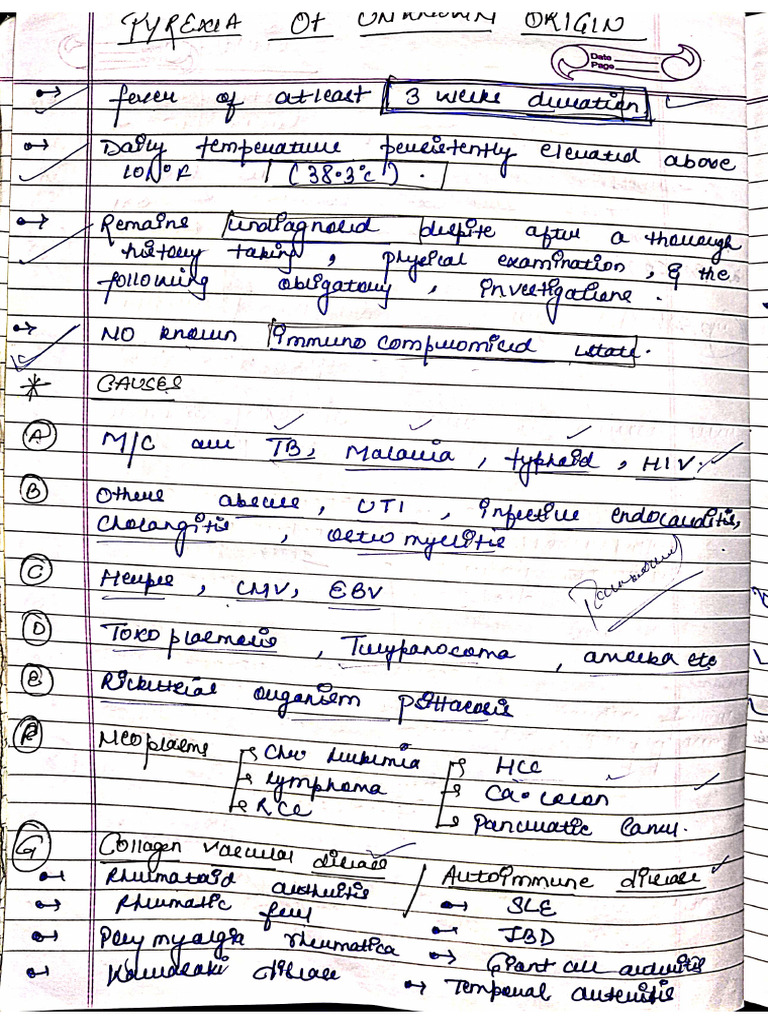 PYREXIA OF UNKNOWN ORIGIN
Date
Page
fever of atleast 3 weeks duration
Daily temperature persistently elevated above
101°F (38.3°c).
Remains undiagnosed despite after a thorough
history taking, physical examination, & the
following obligatory, investigations.
NO known immuno compromised state.
* CAUSES
A M/C are TB, Malaria, typhoid, HIV.
B Others abscess, UTI, infective endocarditis,
Cholangitis, Osteo myelitis
C Herpes, CMV, EBV
D Toxo plasmosis, Trypanosoma, amoeba etc
E Rickettsial organism psittacosis
F Neoplasms Chro leukemia HCC
lymphoma Ca. colon
RCC Pancreatic Cancer.
G Collagen vascular disease / Autoimmune disease
Rheumatoid arthritis SLE
Rheumatic fever IBD
Poly myalgia rheumatica Giant cell arteritis
Kawasaki disease Temporal arteritis